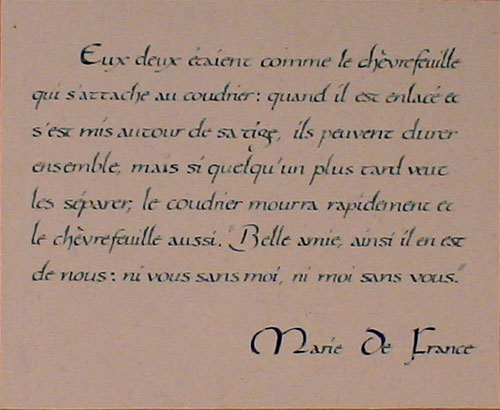 Eux deux étaient comme le chèvrefeuille
qui s'attache au coudrier : quand il est enlacé et
s'est mis autour de sa tige, ils peuvent durer
ensemble, mais si quelqu'un plus tard veut
les séparer, le coudrier mourra rapidement et
le chèvrefeuille aussi. "Belle amie, ainsi il en est
de nous : ni vous sans moi, ni moi sans vous."
Marie De France